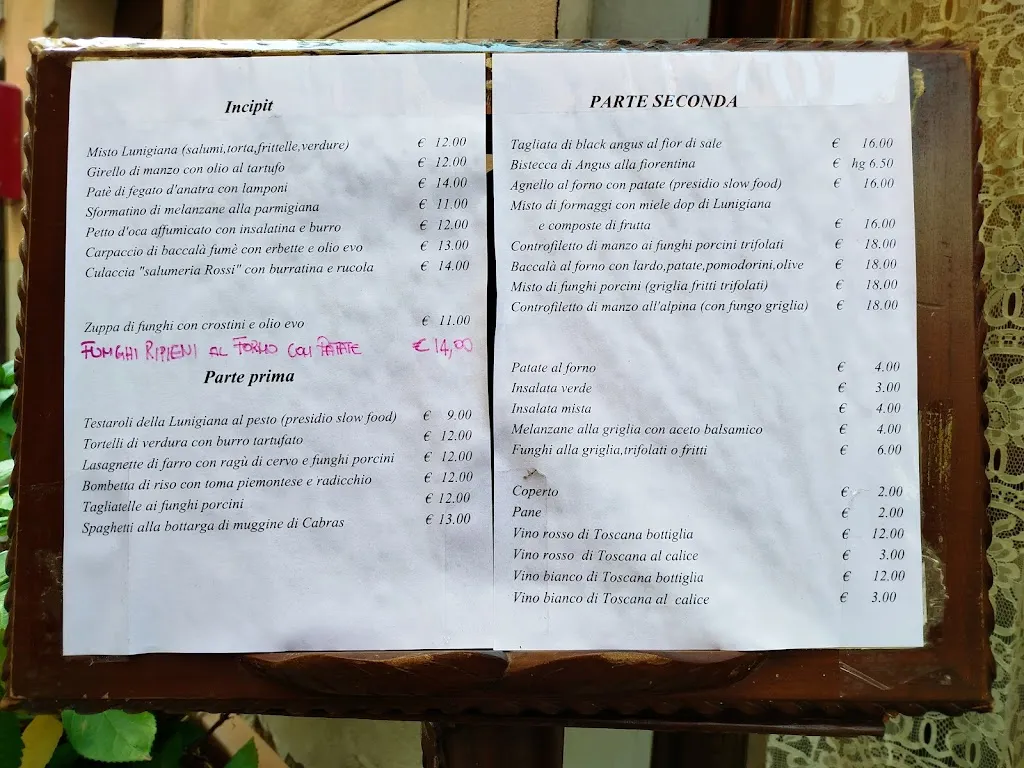 Incipit
Misto Lunigiana (salumi,torta,frittelle,verdure) € 12.00
Girello di manzo con olio al tartufo € 12.00
Patè di fegato d'anatra con lamponi € 14.00
Sformatino di melanzane alla parmigiana € 11.00
Petto d'oca affumicato con insalatina e burro € 12.00
Carpaccio di baccalà fumè con erbette e olio evo € 13.00
Culaccia "salumeria Rossi" con burratina e rucola € 14.00
Zuppa di funghi con crostini e olio evo € 11.00
FUNGHI RIPIENI AL FORNO CON PATATE € 14,00
Parte prima
Testaroli della Lunigiana al pesto (presidio slow food) € 9.00
Tortelli di verdura con burro tartufato € 12.00
Lasagnette di farro con ragù di cervo e funghi porcini € 12.00
Bombetta di riso con toma piemontese e radicchio € 12.00
Tagliatelle ai funghi porcini € 12.00
Spaghetti alla bottarga di muggine di Cabras € 13.00
PARTE SECONDA
Tagliata di black angus al fior di sale € 16.00
Bistecca di Angus alla fiorentina € hg 6.50
Agnello al forno con patate (presidio slow food) € 16.00
Misto di formaggi con miele dop di Lunigiana
e composte di frutta € 16.00
Controfiletto di manzo ai funghi porcini trifolati € 18.00
Baccalà al forno con lardo,patate,pomodorini,olive € 18.00
Misto di funghi porcini (griglia fritti trifolati) € 18.00
Controfiletto di manzo all'alpina (con fungo griglia) € 18.00
Patate al forno € 4.00
Insalata verde € 3.00
Insalata mista € 4.00
Melanzane alla griglia con aceto balsamico € 4.00
Funghi alla griglia,trifolati o fritti € 6.00
Coperto € 2.00
Pane € 2.00
Vino rosso di Toscana bottiglia € 12.00
Vino rosso di Toscana al calice € 3.00
Vino bianco di Toscana bottiglia € 12.00
Vino bianco di Toscana al calice € 3.00